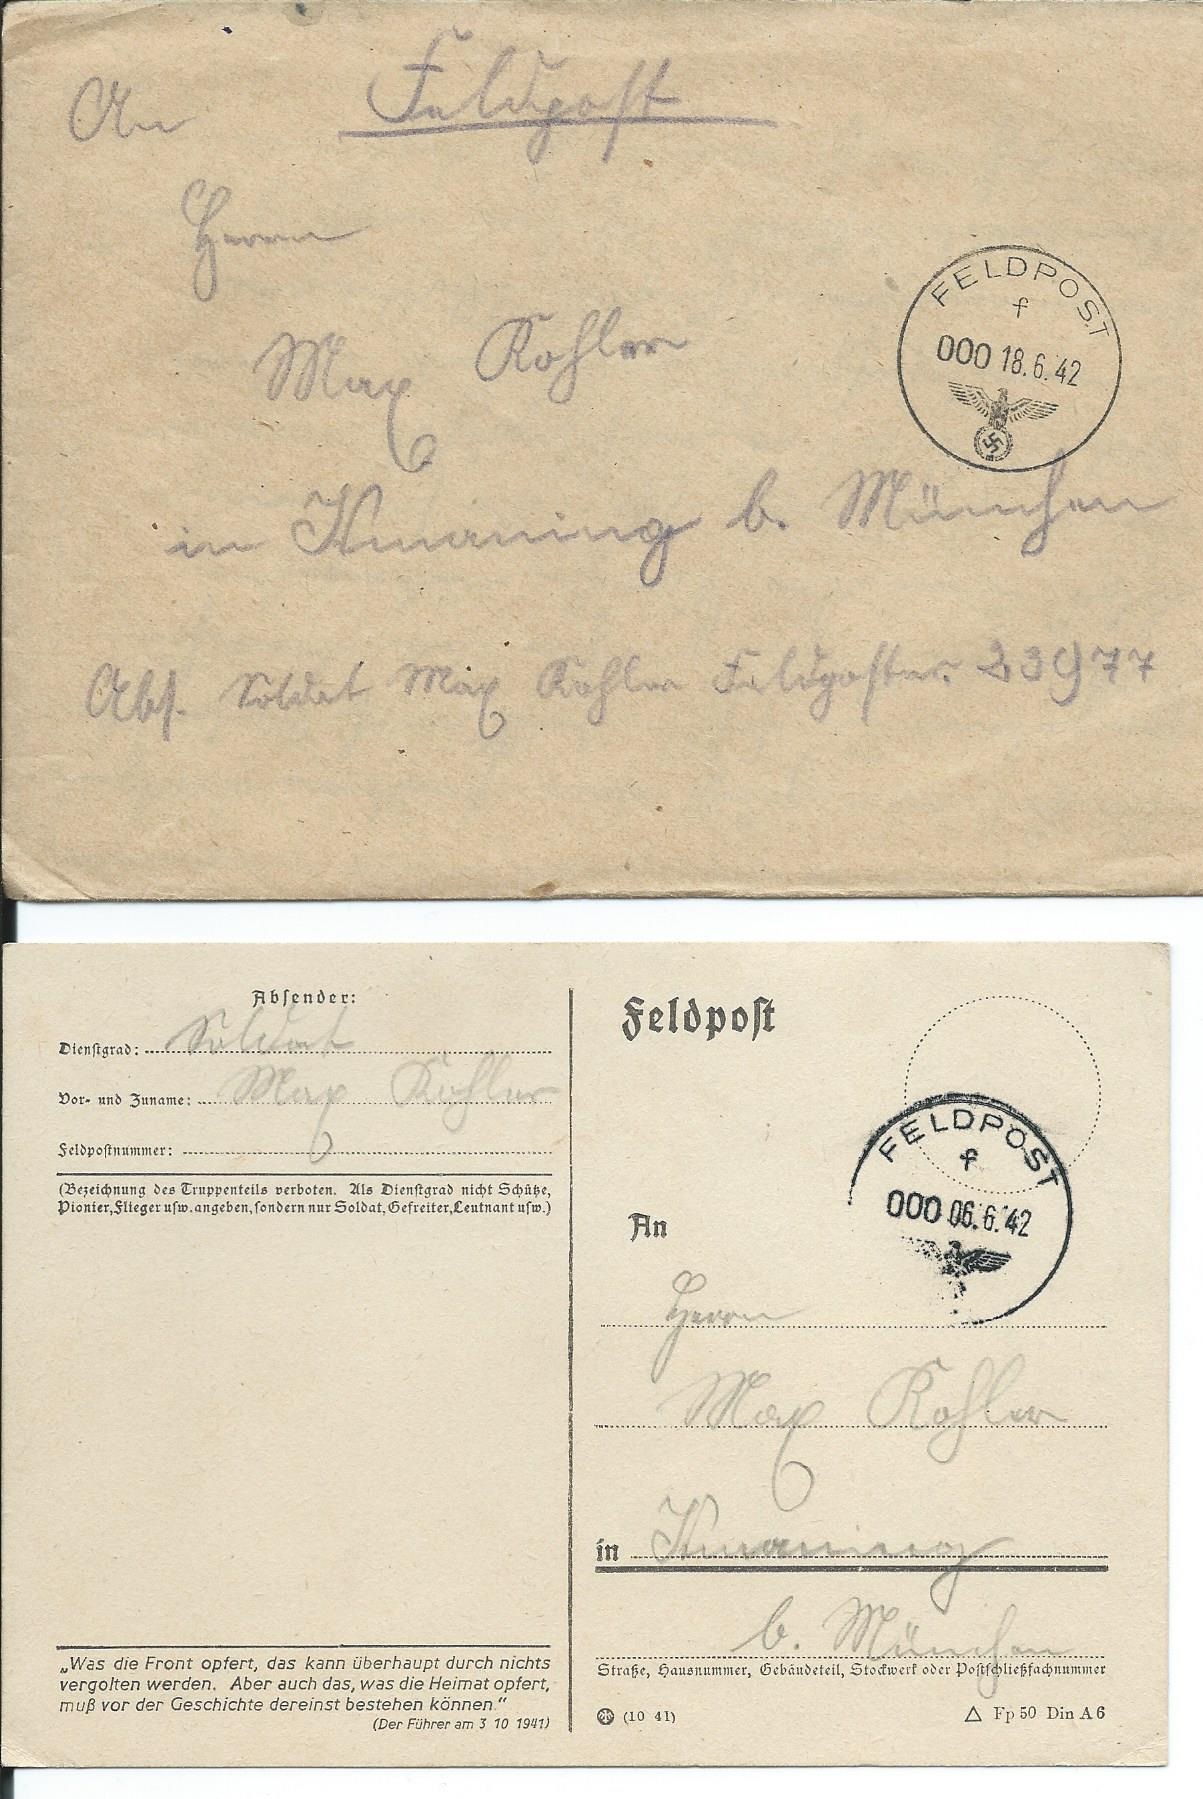 An Feldpost
Herrn
Max Kohler
in Ismaning b. München
Abs. Soldat Max Kohler Feldpostnr. 23977
FELDPOST
f
000 18.6.42
Absender:
Dienstgrad: Soldat
Vor- und Zuname: Max Kohler
Feldpostnummer:
(Bezeichnung des Truppenteils verboten. Als Dienstgrad nicht Schütze,
Pionier, Flieger usw. angeben, sondern nur Soldat, Gefreiter, Leutnant usw.)
„Was die Front opfert, das kann überhaupt durch nichts
vergolten werden. Aber auch das, was die Heimat opfert,
muß vor der Geschichte dereinst bestehen können."
(Der Führer am 3 10 1941)
Feldpost
FELDPOST
f
000 06.6.42
An
Herrn
Max Kohler
in Ismaning
b. München
Straße, Hausnummer, Gebäudeteil, Stockwerk oder Postschließfachnummer
(10 41)
Fp 50 Din A 6